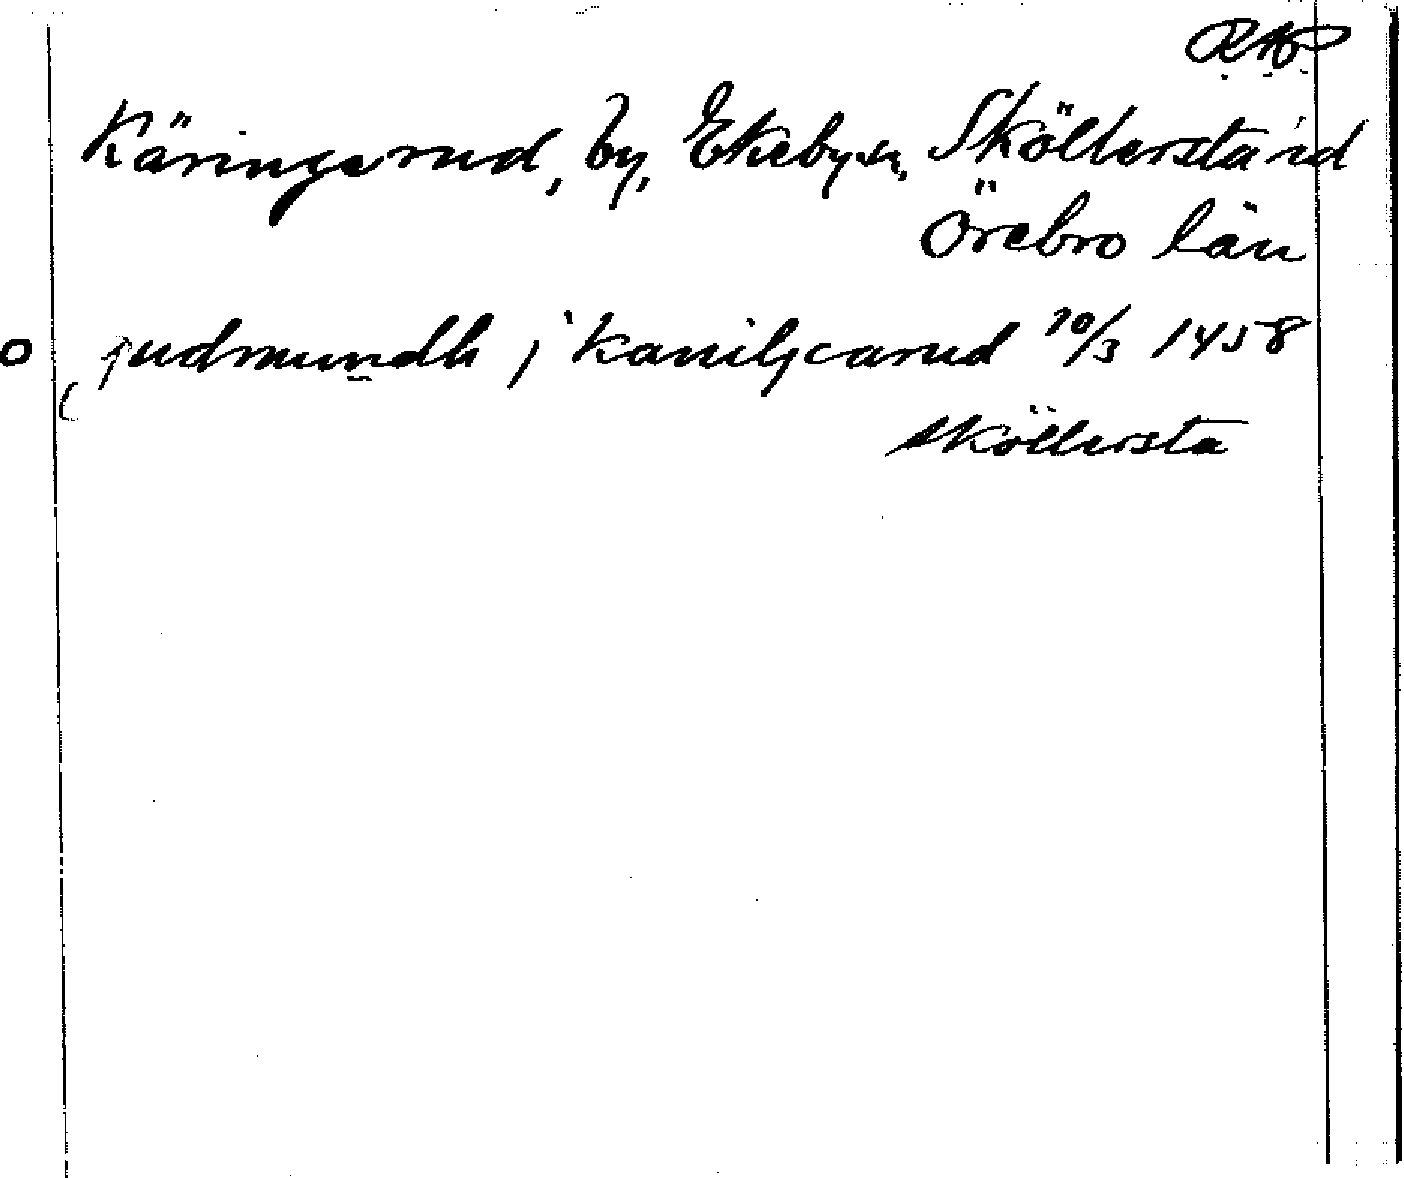 RAP
Käringerud, by, Ekeby sn, Sköllersta hd
Örebro län
o gudmundh j kaniljcarud 10/3 1458
Sköllersta